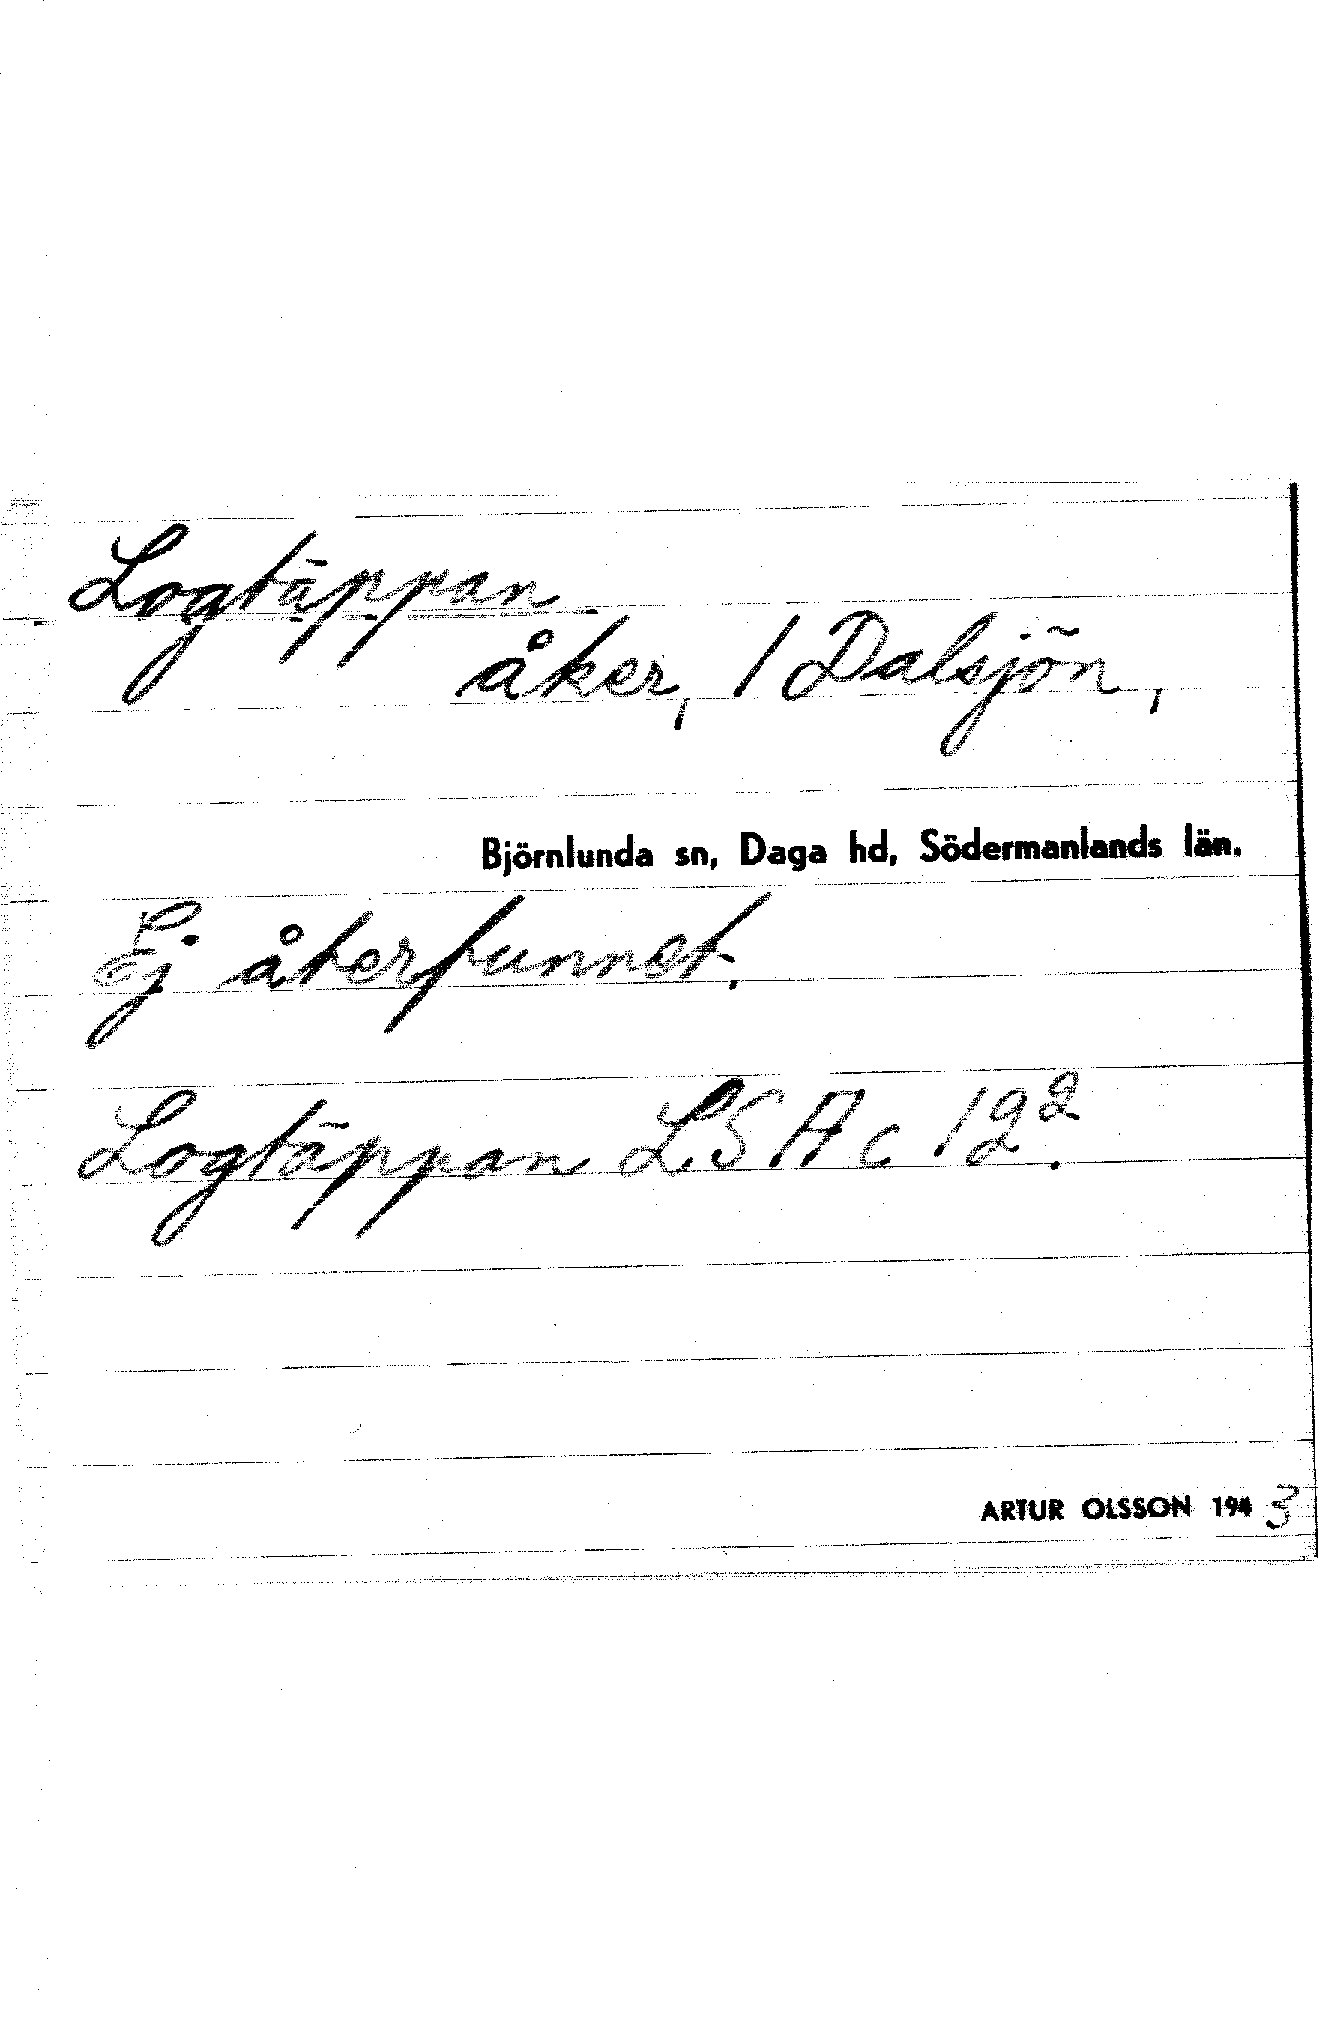 Logtäppan
åker, 1 Dalsjön,
Björnlunda sn, Daga hd, Södermanlands län.
Ej återfunnet.
Logtäppan LSA c 12².
ARTUR OLSSON 1943